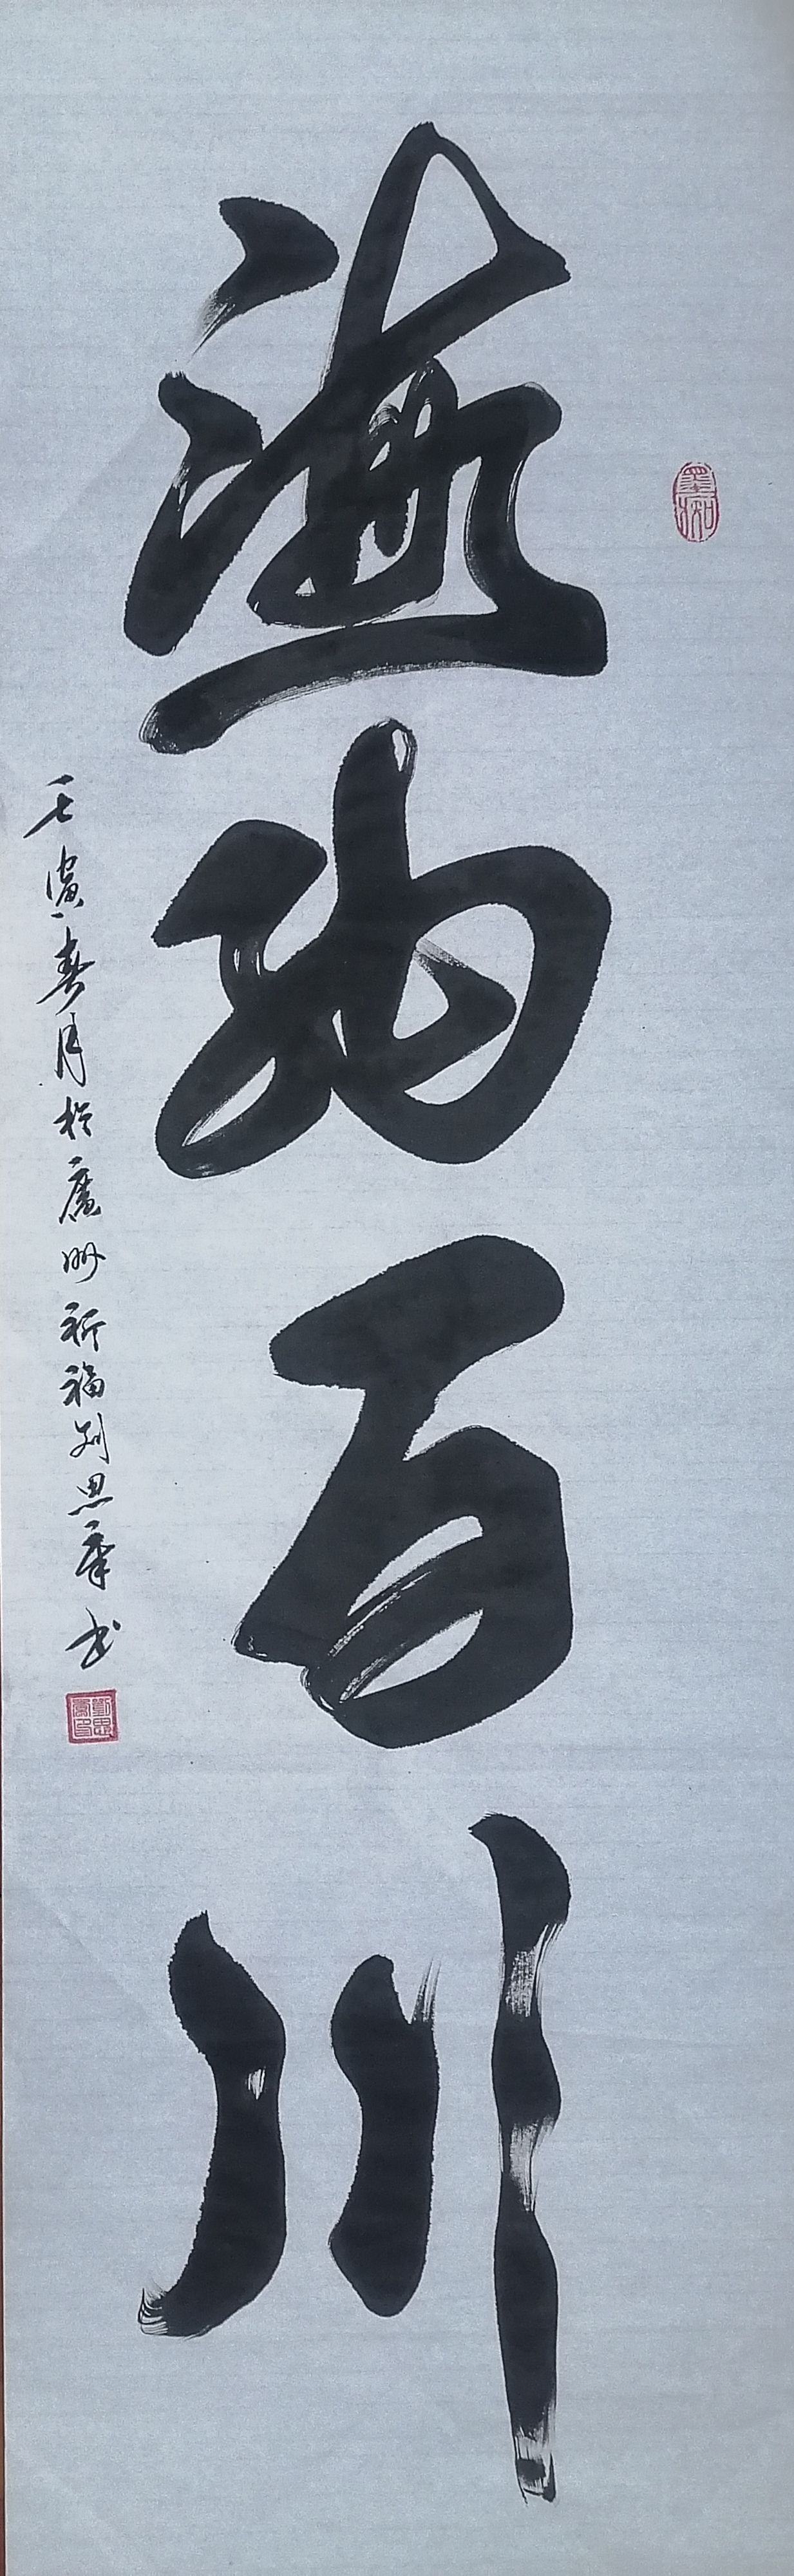 海納百川
壬寅春月於廣州祈福刘思书